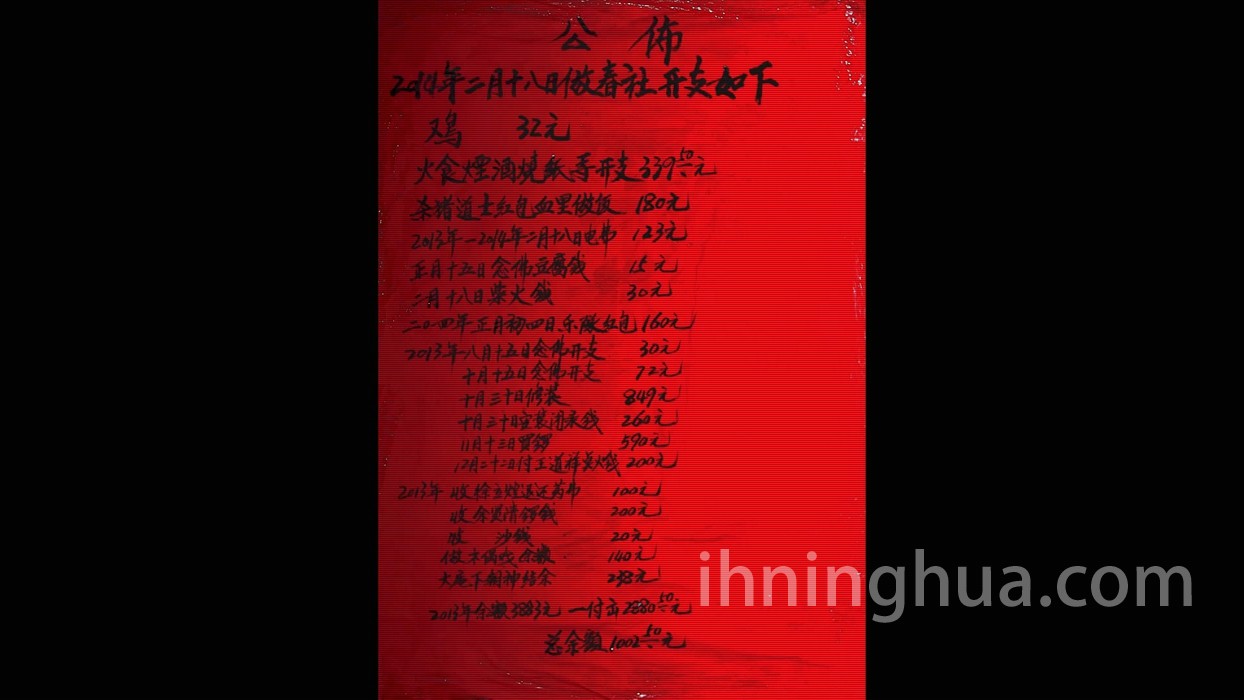 公佈
2014年二月十八日做春社开支如下
鸡 32元
火食煙酒燒紙等开支33950元
杀猪道士红包血里做饭 180元
2013年—2014年二月十八日电费 123元
正月十五日念佛豆腐钱 15元
二月十八日柴火钱 30元
二〇一四年正月初四日乐队红包 160元
2013年八月十五日念佛开支 30元
十月十五日念佛开支 72元
十月三十日修装 849元
十月三十日安装 钱 260元
11月十三日買鑼 590元
12月二十二日付王道祥 钱 200元
2013年收徐 100元
收余 清鑼钱 200元
收 沙钱 20元
做木偶戏余款 140元
大 下 神结余 238元
2013年余额3883元—付去288050元
总余额100250元
ihninghua.com